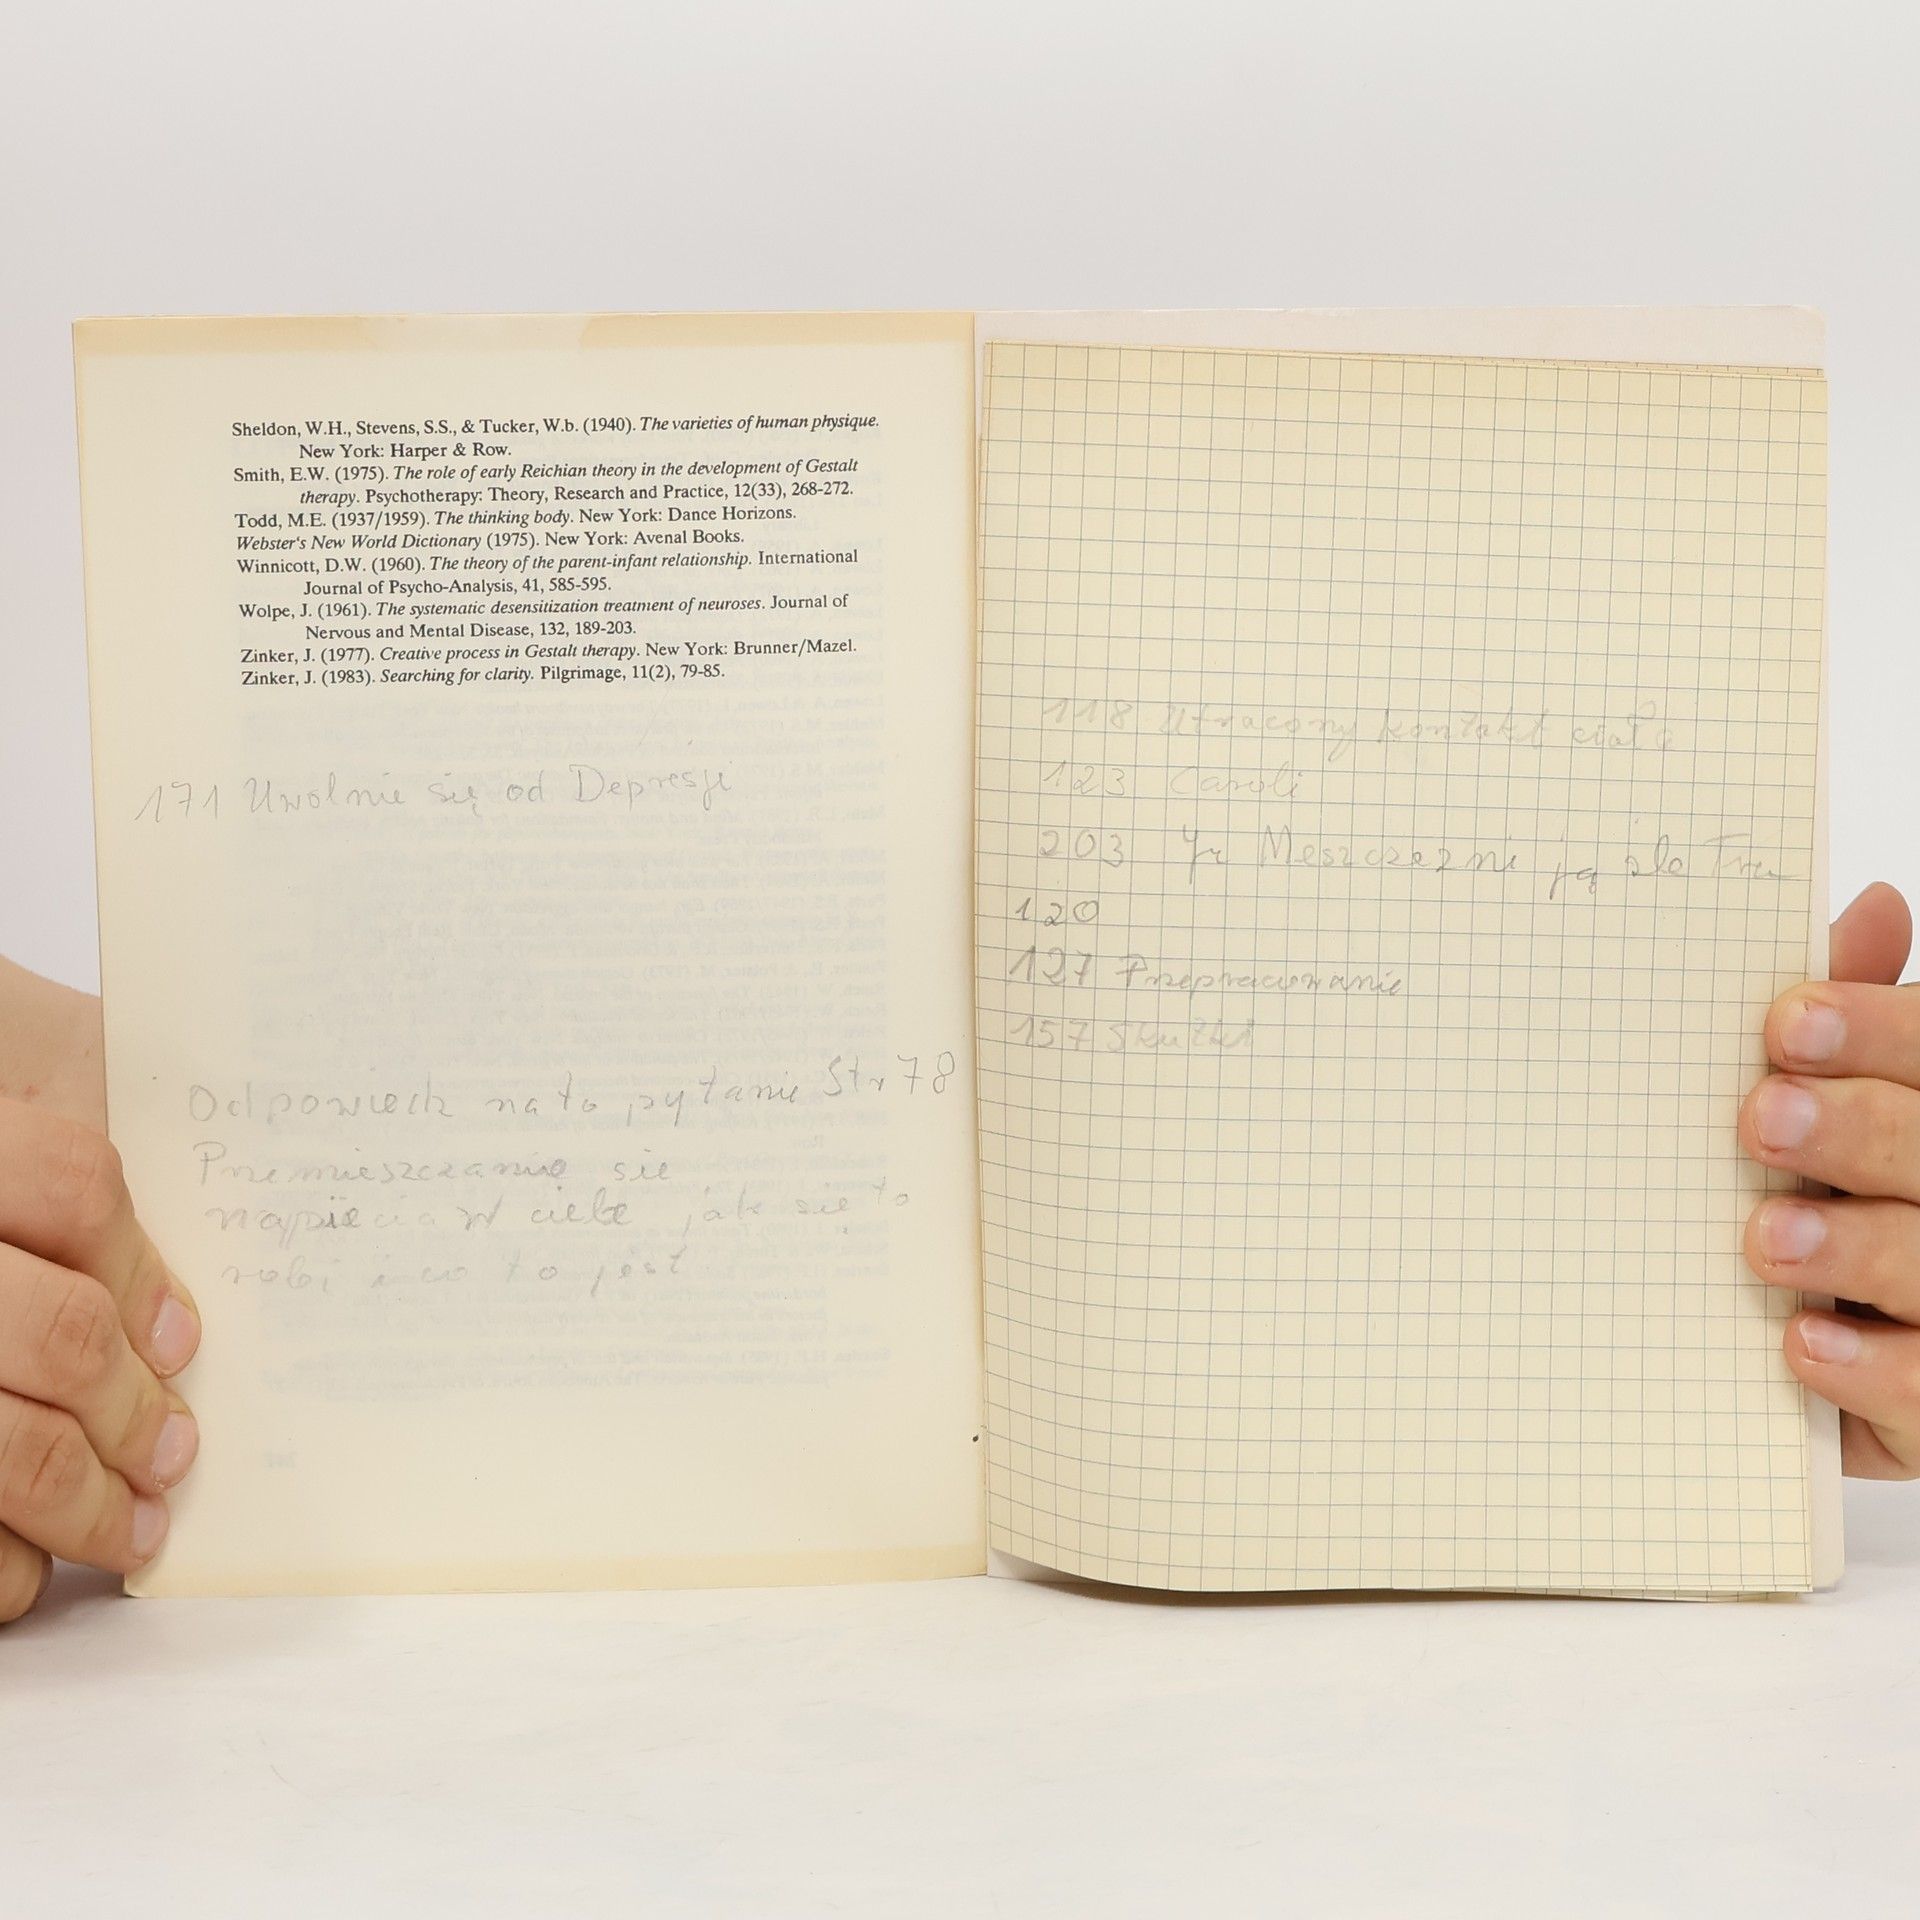 Sheldon, W.H., Stevens, S.S., & Tucker, W.b. (1940). The varieties of human physique.
New York: Harper & Row.
Smith, E.W. (1975). The role of early Reichian theory in the development of Gestalt
therapy. Psychotherapy: Theory, Research and Practice, 12(33), 268-272.
Todd, M.E. (1937/1959). The thinking body. New York: Dance Horizons.
Webster's New World Dictionary (1975). New York: Avenal Books.
Winnicott, D.W. (1960). The theory of the parent-infant relationship. International
Journal of Psycho-Analysis, 41, 585-595.
Wolpe, J. (1961). The systematic desensitization treatment of neuroses. Journal of
Nervous and Mental Disease, 132, 189-203.
Zinker, J. (1977). Creative process in Gestalt therapy. New York: Brunner/Mazel.
Zinker, J. (1983). Searching for clarity. Pilgrimage, 11(2), 79-85.
171 Uwolnie się od Depresji
na to pytanie Str 78
Przemieszczanie sie
w ciele jak się to
robi i co to jest
118 Utracony kontakt
123 Caroli
203 ją zle
120
127 Przepracowanie
157